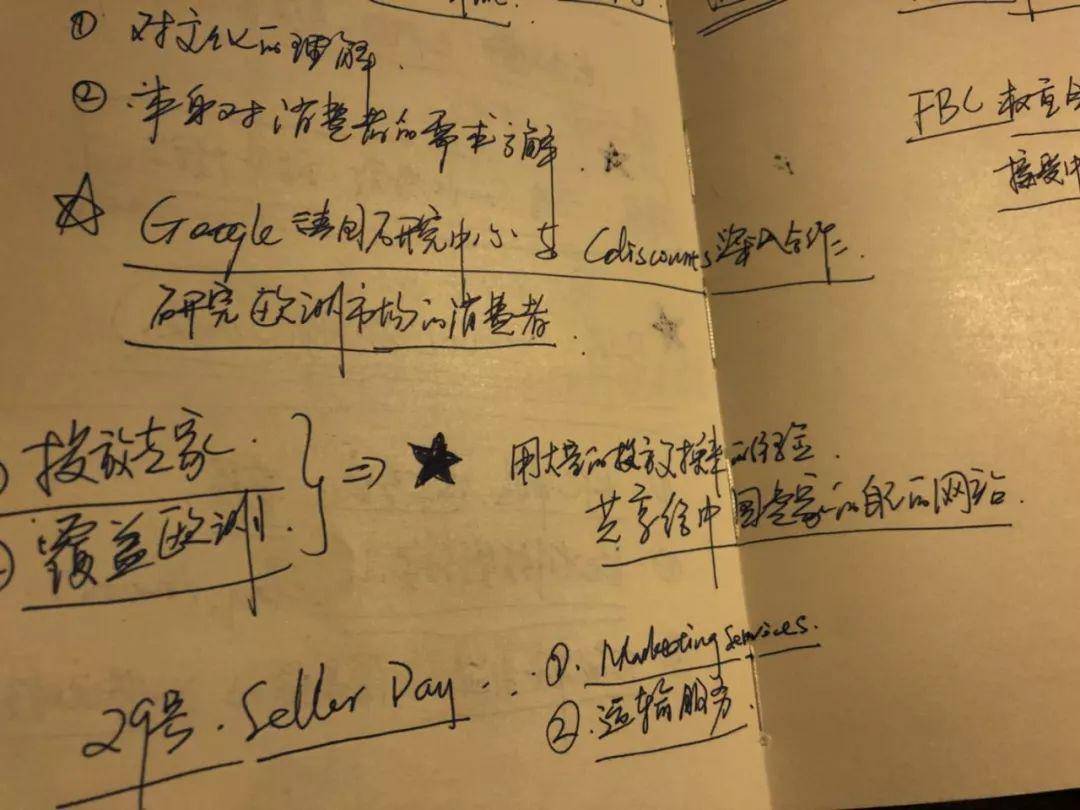 ① 对文化的理解.
② 本身对消费者的需求了解.
FBC 权重
接受中
Google 法国研究中心 与 Cdiscounts 深入合作
研究欧洲市场的消费者.
投放专家.
覆盖欧洲.
用大量的投放换来的经验.
共享给中国卖家的自己的网站.
29号. Seller Day ...
①. Marketing Services.
②. 运输服务.